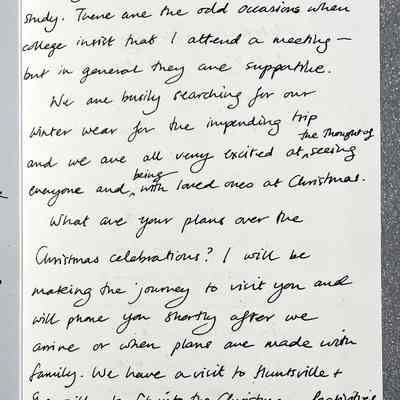 study. There are the odd occasions when
college insist that I attend a meeting –
but in general they are supportive.
We are busily searching for our
winter wear for the impending trip
and we are all very excited at the thought of seeing
everyone and being with loved ones at Christmas.
What are your plans over the
Christmas celebrations? I will be
making the journey to visit you and
will phone you shortly after we
arrive or when plans are made with
family. We have a visit to Huntsville +